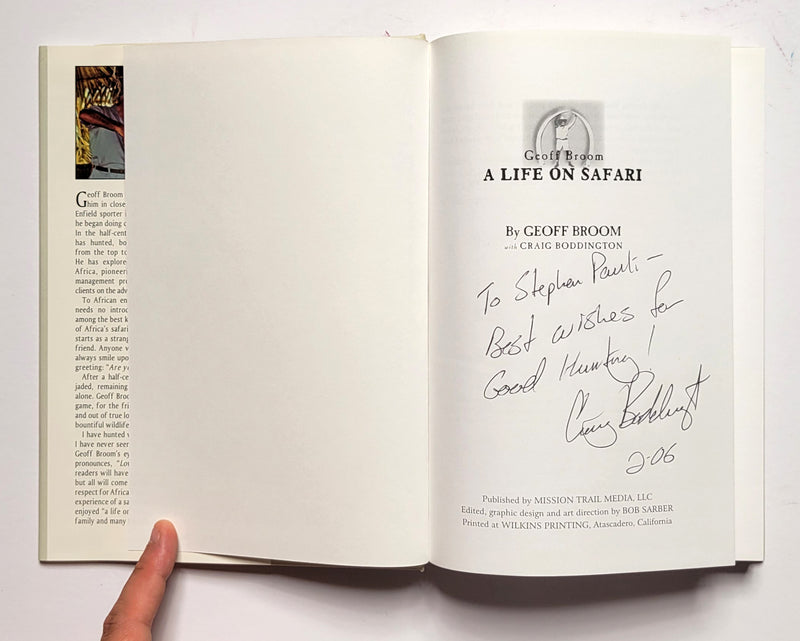 Geoff Broom
him in close
Enfield sporter
he began doing
In the half-cent
has hunted, bo
from the top to
He has explore
Africa, pioneeri
management pr
clients on the adv
To African en
needs no introc
among the best k
of Africa's safari
starts as a strang
friend. Anyone v
always smile upo
greeting: "Are yo
After a half-ce
jaded, remaining
alone. Geoff Broc
game, for the fri
and out of true lo
bountiful wildlife
I have hunted
I have never seer
Geoff Broom's ey
pronounces, "Lo
readers will have
but all will come
respect for Africa
experience of a sa
enjoyed "a life or
family and many
Geoff Broom
A LIFE ON SAFARI
By GEOFF BROOM
with CRAIG BODDINGTON
To Stephen Pauli –
Best wishes for
Good Hunting!
Craig Boddington
2-06
Published by MISSION TRAIL MEDIA, LLC
Edited, graphic design and art direction by BOB SARBER
Printed at WILKINS PRINTING, Atascadero, California